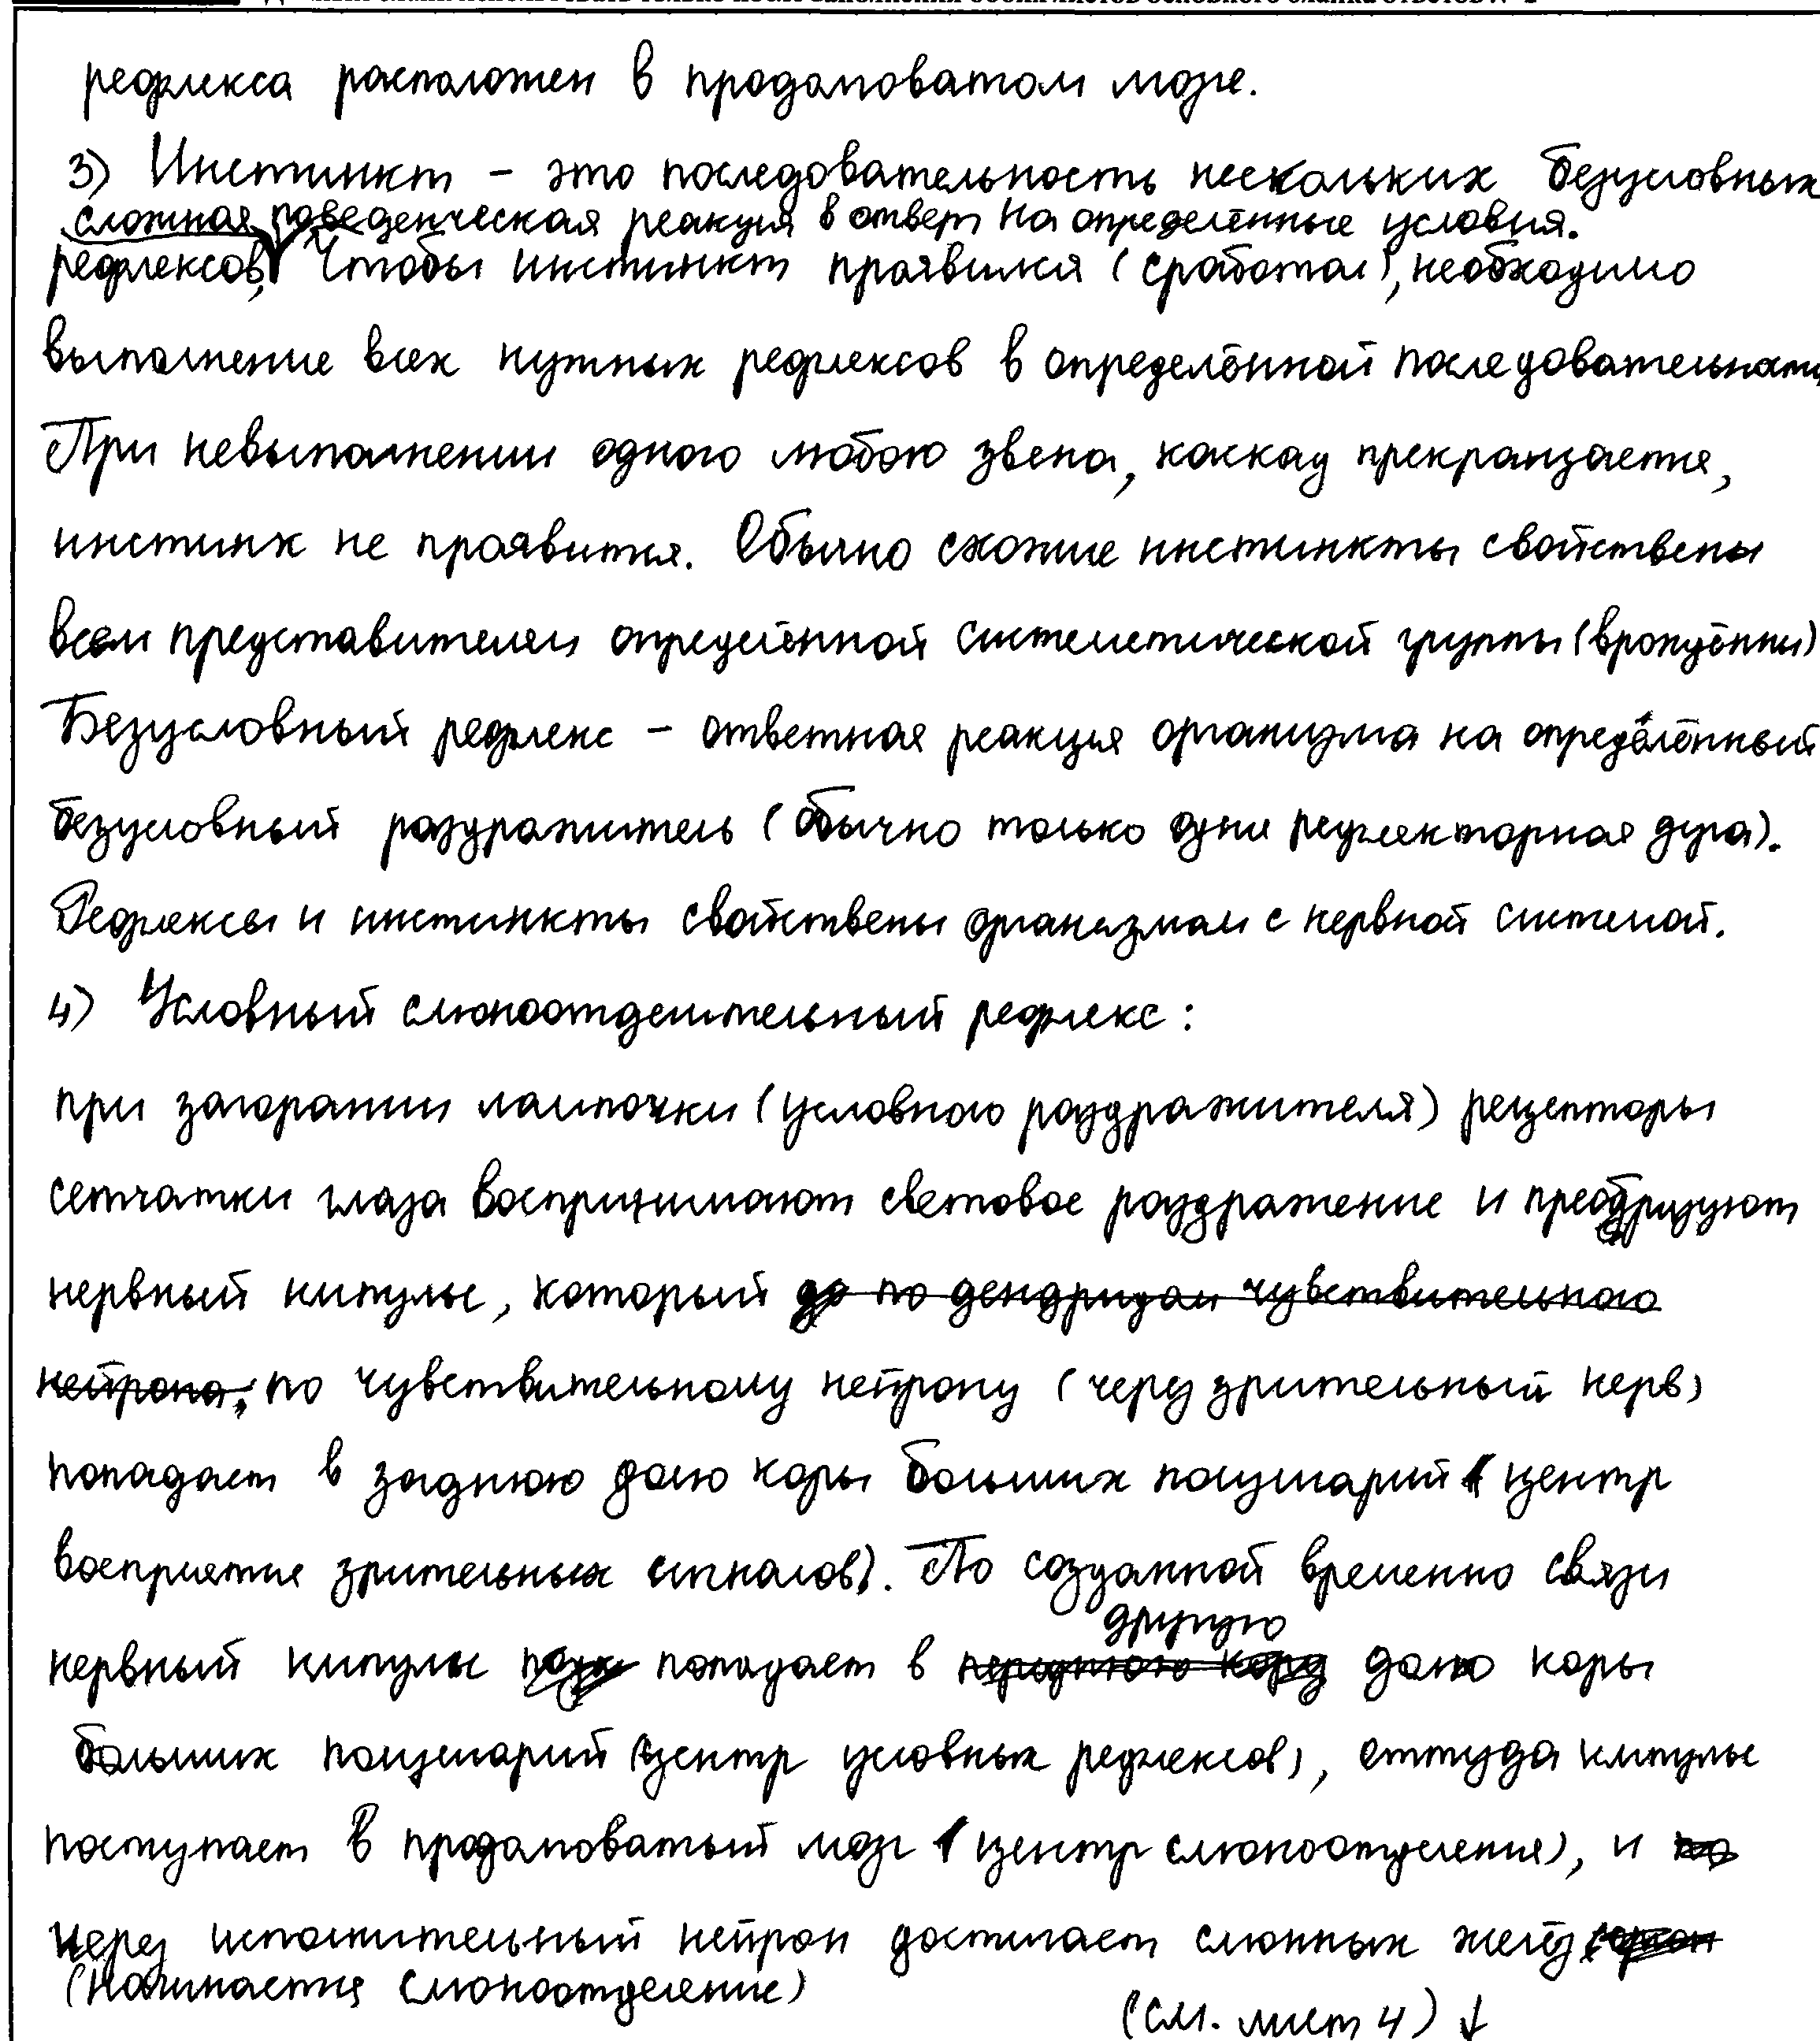 рефлекса расположен в продолговатом мозге.
3) Инстинкт – это последовательность нескольких безусловных
сложная поведенческая реакция в ответ на определённые условия.
рефлексов, Чтобы инстинкт проявился (сработал), необходимо
выполнение всех нужных рефлексов в определённой последовательности
При невыполнении одного любого звена, каскад прекращается,
инстинк не проявится. Обычно схожие инстинкты свойствены
всем представителям определённой системетической группы (врождённы)
Безусловный рефлекс – ответная реакция организма на определённый
безусловный раздражитель (обычно только одна рефлекторная дуга).
Рефлексы и инстинкты свойствены организмам с нервной системой.
4) Условный слюноотделительный рефлекс:
при загорании лампочки (условного раздражителя) рецепторы
сетчатки глаза воспринимают световое раздражение и преобразуют
нервный импульс, который до по дендридам чувствительного
нейрона, по чувствительному нейрону (через зрительный нерв)
попадает в заднюю долю коры больших полушарий (центр
восприятия зрительных сигналов). По созданной временно связи
другую
нервный импульс попадает в переднюю кору долю коры
больших полушарий (центр условных рефлексов), оттуда импульс
поступает в продолговатый мозг (центр слюноотделения), и по
через исполнительный нейрон достигает слюнных желёз
(начинается слюноотделение)
(см. лист 4) ↓